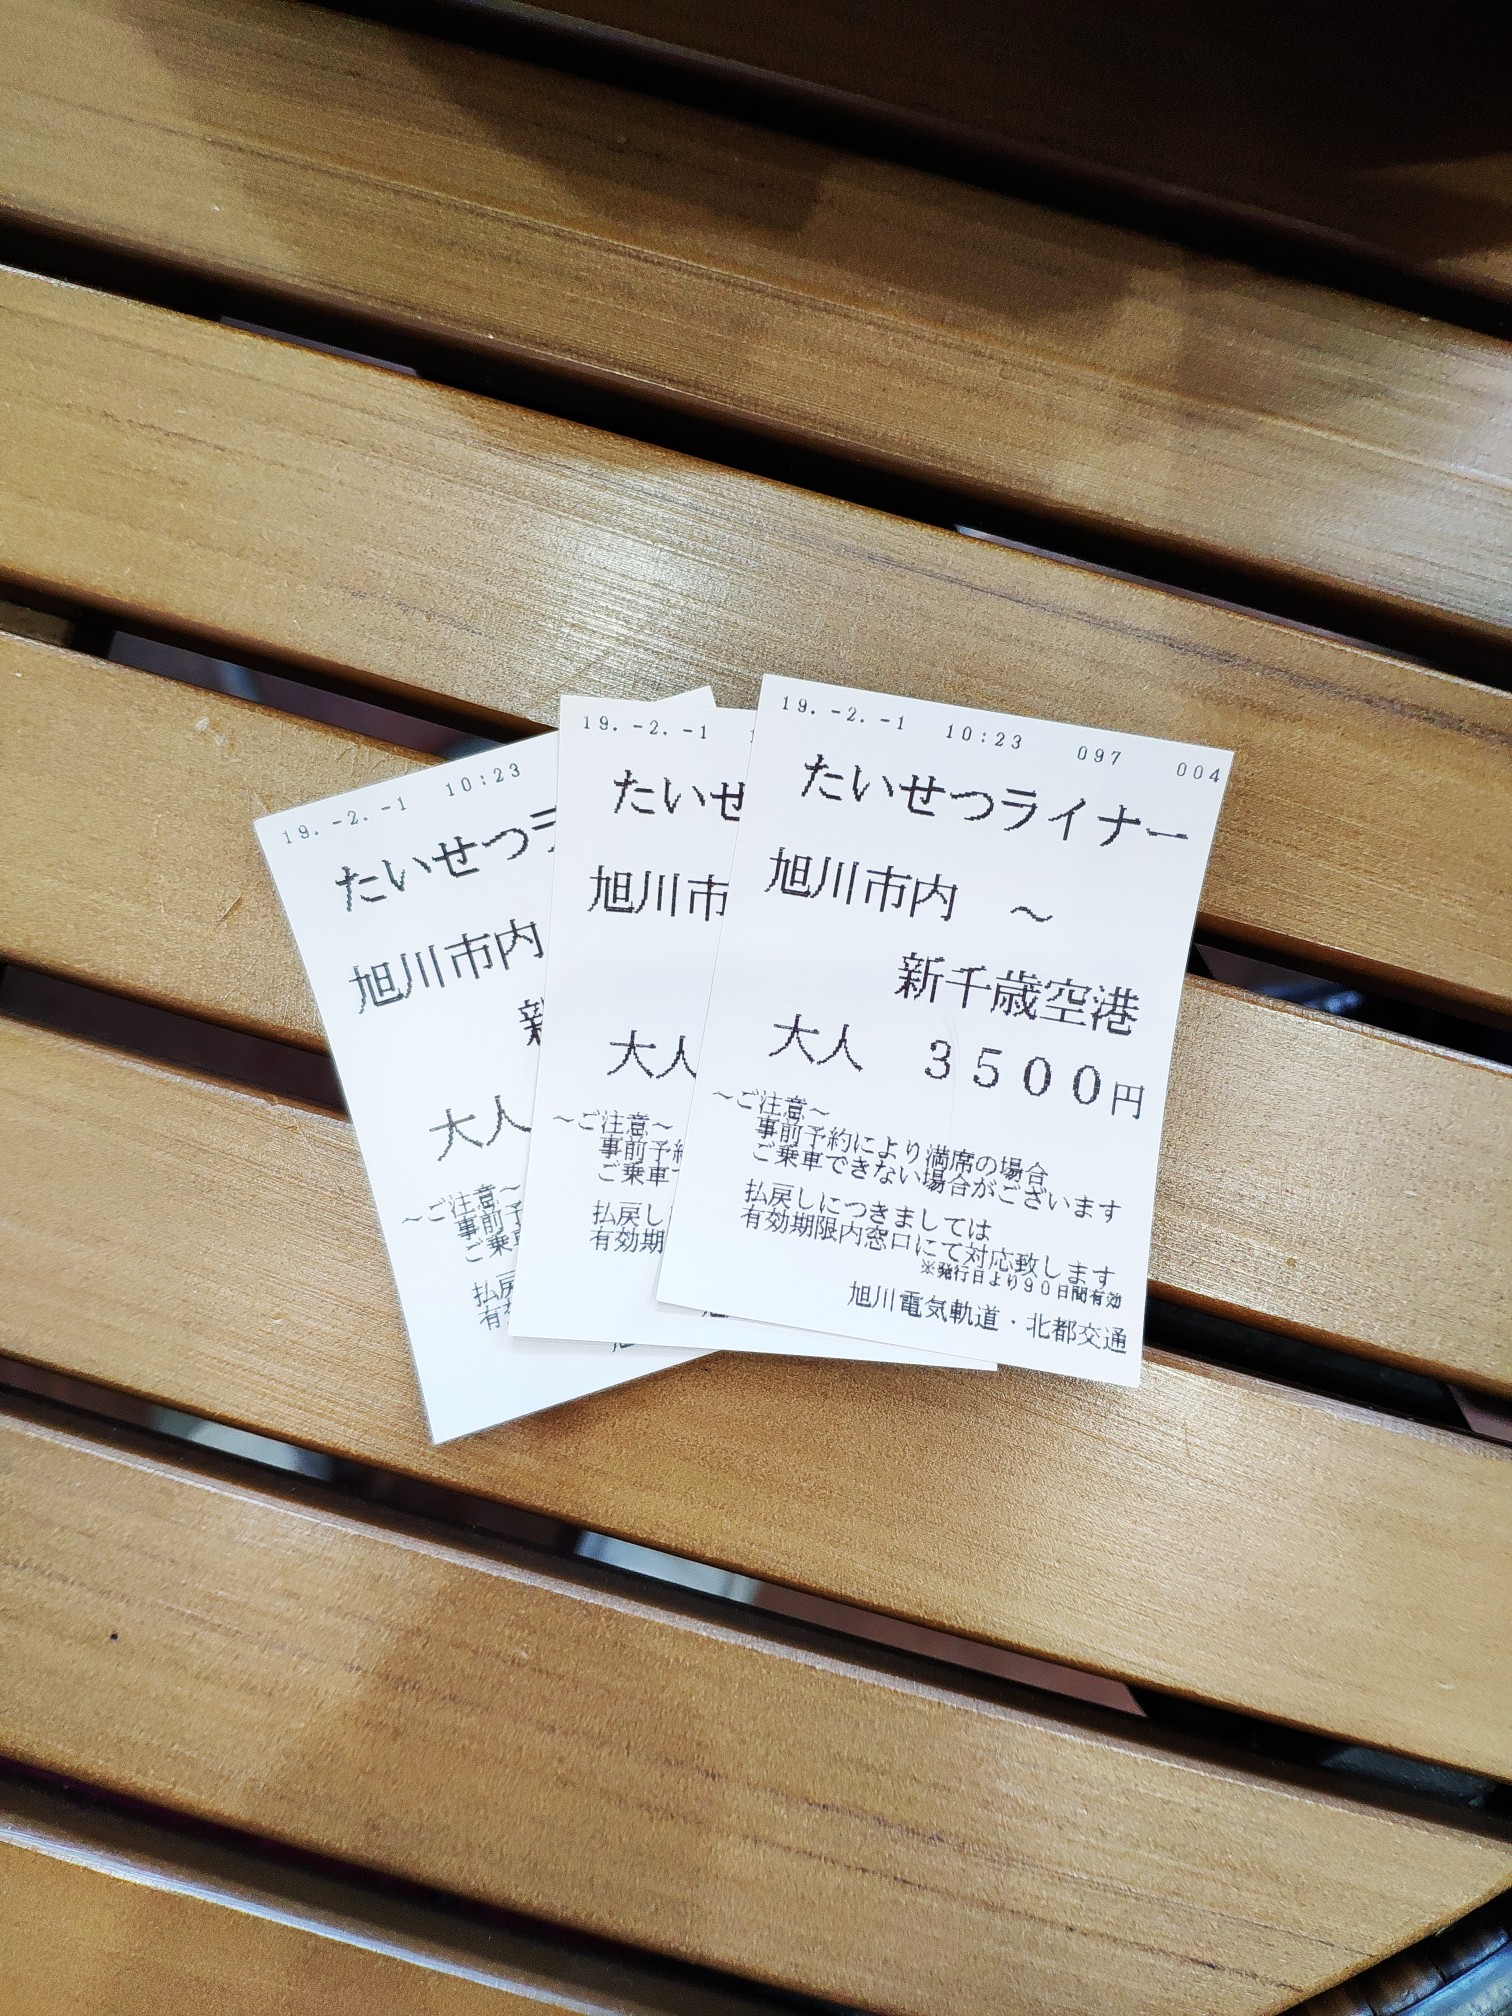 19. -2. -1 10:23
たいせつラ
旭川市内
新
大人
～ご注意～
事前予
ご乗車
払戻
有
19. -2. -1
たいせ
旭川市
大人
～ご注意～
事前予約
ご乗車で
払戻し
有効期
19. -2. -1 10:23 097 004
たいせつライナー
旭川市内 ～
新千歳空港
大人 3500円
～ご注意～
事前予約により満席の場合
ご乗車できない場合がございます
払戻しにつきましては
有効期限内窓口にて対応致します
※発行日より90日間有効
旭川電気軌道・北都交通